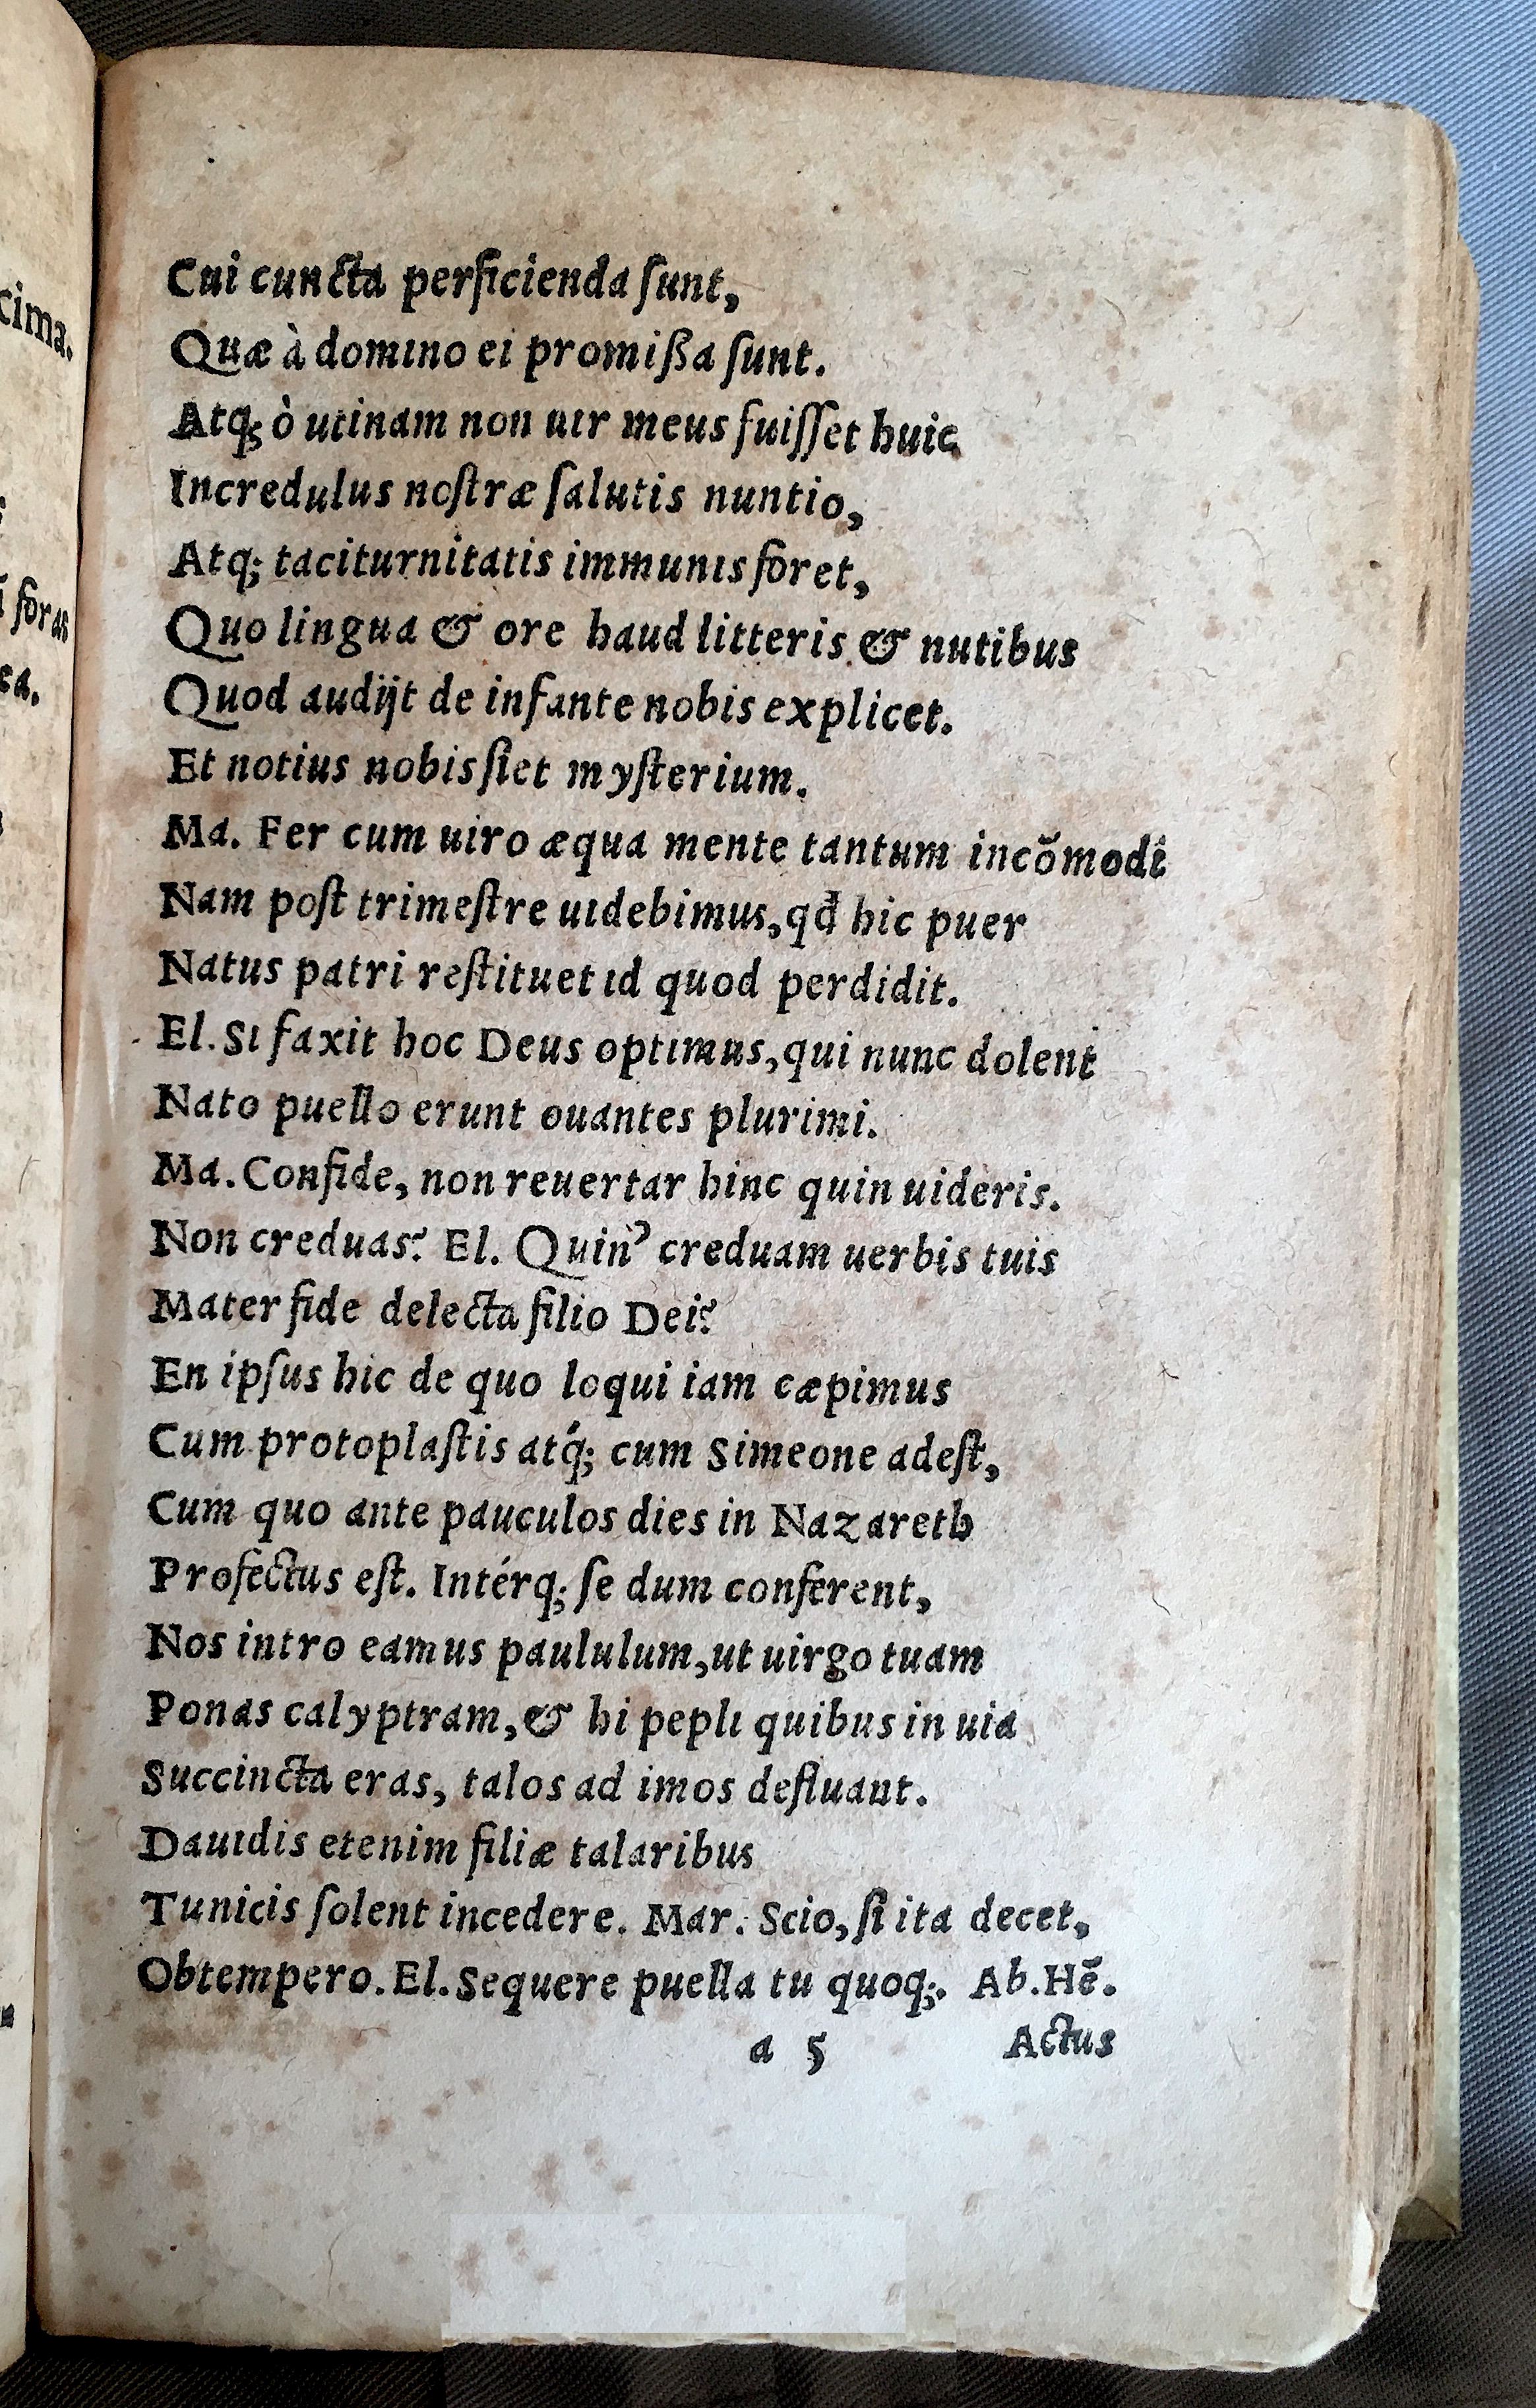 Cui cuncta perficienda ſunt,
Quæ à domino ei promißa ſunt.
Atq; ò utinam non uir meus fuiſſet huic
Incredulus noſtræ ſalutis nuntio,
Atq; taciturnitatis immunis foret,
Quo lingua & ore haud litteris & nutibus
Quod audijt de infante nobis explicet.
Et notius nobis ſiet myſterium.
Ma. Fer cum uiro æqua mente tantum incōmodi
Nam poſt trimeſtre uidebimus, qđ hic puer
Natus patri reſtituet id quod perdidit.
El. Si faxit hoc Deus optimus, qui nunc dolent
Nato puello erunt ouantes plurimi.
Ma. Confide, non reuertar hinc quin uideris.
Non creduas? El. Quin' creduam uerbis tuis
Mater fide delecta filio Dei?
En ipſus hic de quo loqui iam cæpimus
Cum protoplaſtis atq́; cum Simeone adeſt,
Cum quo ante pauculos dies in Nazareth
Profectus eſt. Intérq; ſe dum conferent,
Nos intro eamus paululum, ut uirgo tuam
Ponas calyptram, & hi pepli quibus in uia
Succincta eras, talos ad imos defluant.
Dauidis etenim filiæ talaribus
Tunicis ſolent incedere. Mar. Scio, ſi ita decet,
Obtempero. El. Sequere puella tu quoq;. Ab. Hē.
a 5 Actus
cima.
foras
ca.